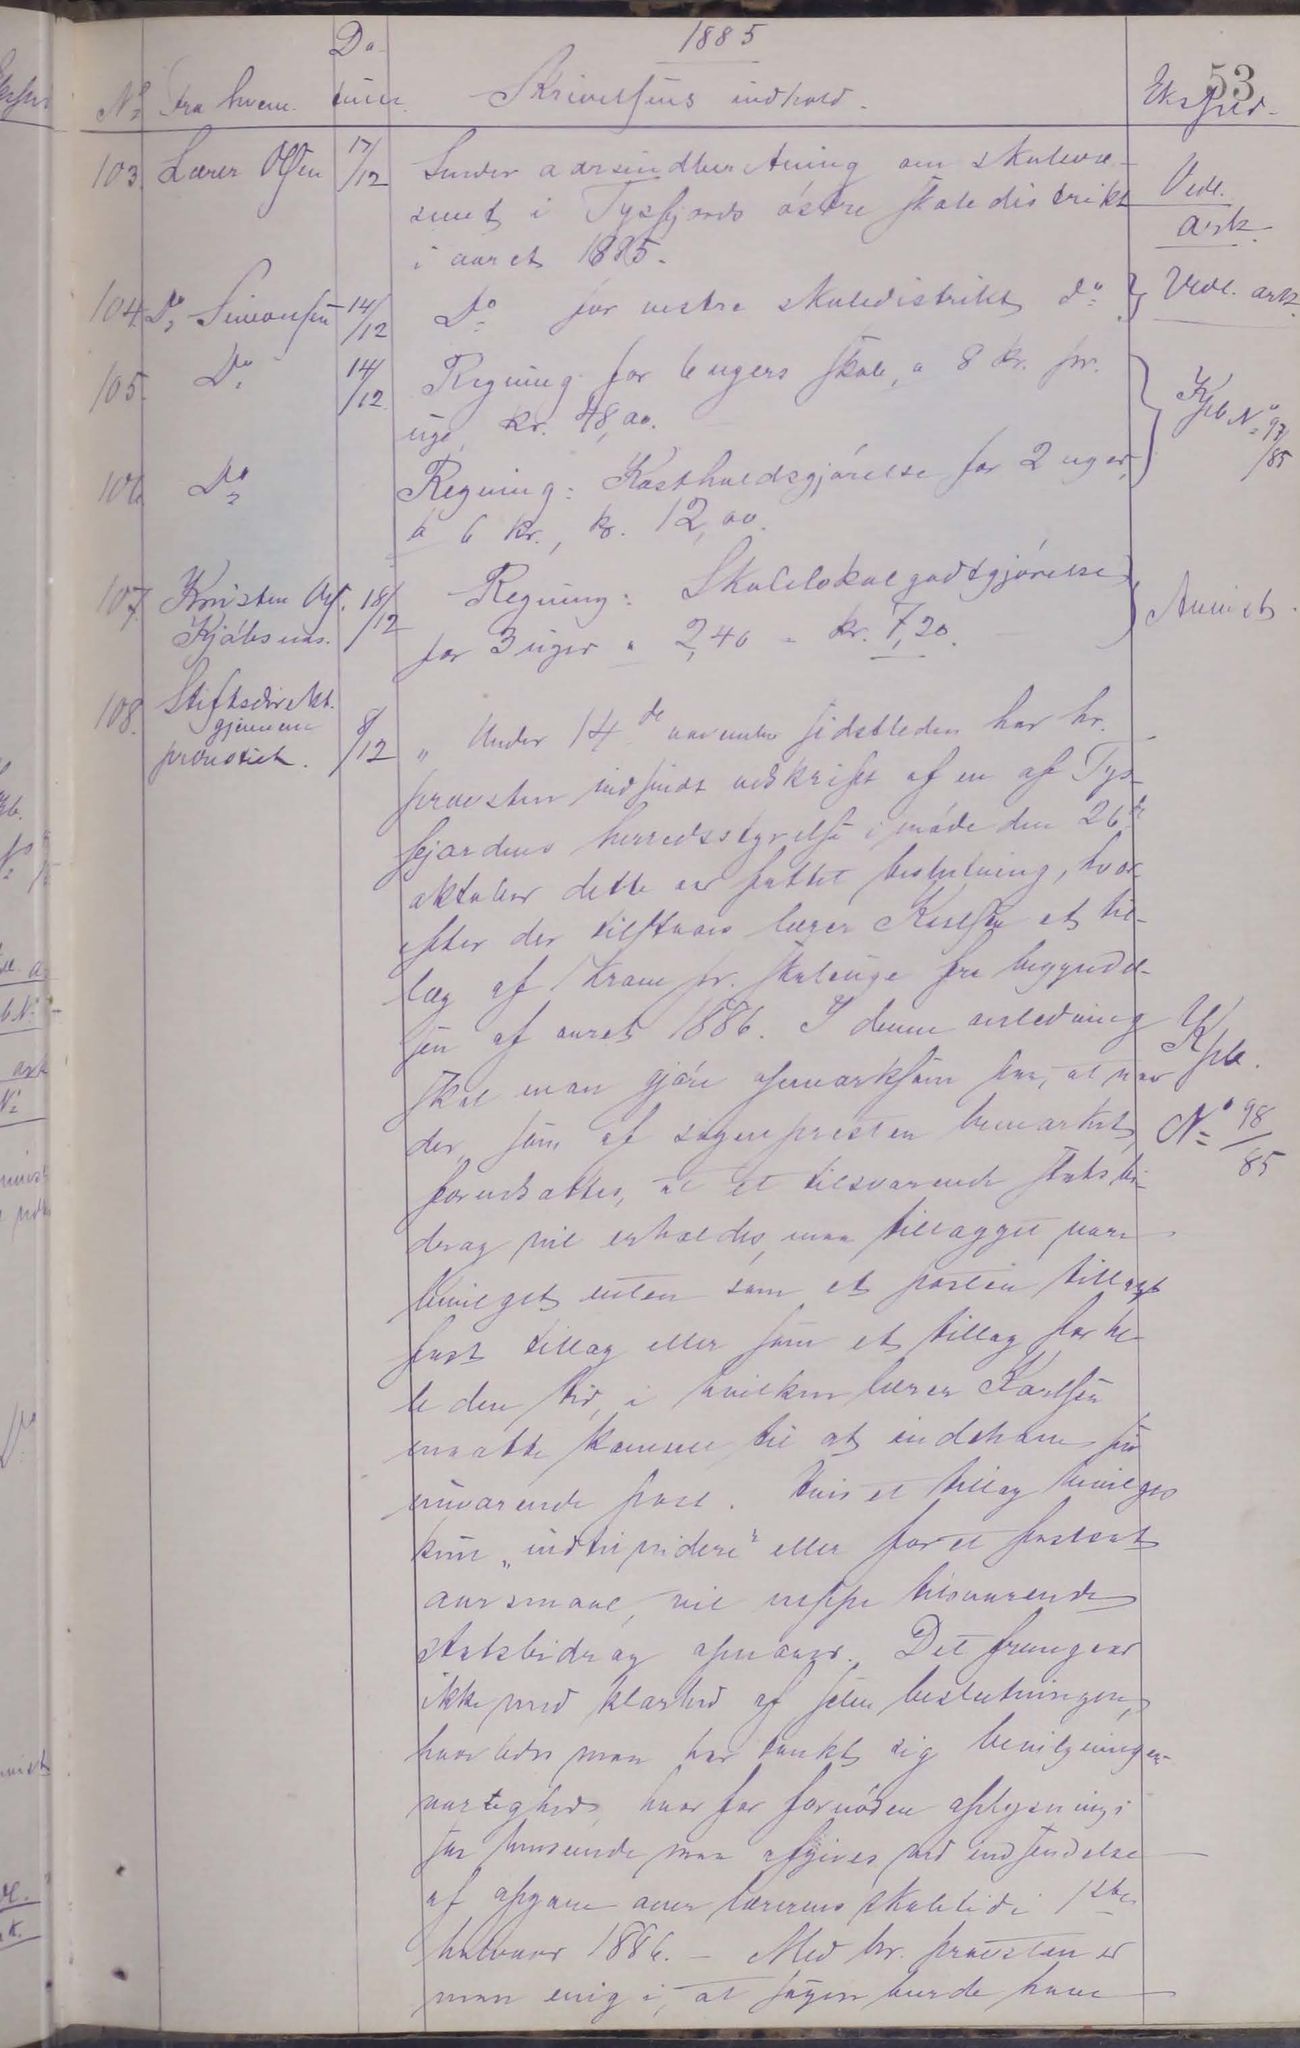 1885
53
No Fra hvem. Datum. Skrivelsens indhold. Eksped.
103. Lærer Olsen 17/12 Sender aarsindberetning om skolevæ-
senet i Tysfjords østre skoledistrikt
i aaret 1885.
Vedl. ark.
104. Do Simonsen 14/12 Do for vestre skoledistrikt do Vedl. ark.
105. Do 14/12 Regning for 6 ugers skole, a 8 kr. pr.
uge, kr. 48,00.
Kpb. No 97/85
106. Do Regning: Kostholdsgjørelse for 2 uger,
a 6 kr., kr. 12,00.
107. Kristen Kjøbsnes. 18/12 Regning: Skolelokalgodtgjørelse
for 3 uger a 2,40 = kr. 7,20.
Anvist.
108. Stiftsdirekt. gjennem provstiet. 8/12 „ Under 14de november sidstleden har hr.
provsten indsendt udskrift af en af Tys-
fjordens herredsstyrelse i møde den 26de
oktober dette aar fattet beslutning, hvor-
efter der tilstaaes lærer Karlsen et til-
læg af 1 krone pr. skoleuge fra begyndel-
sen af aaret 1886. I denne anledning
skal man gjøre opmærksom paa, at naar
der, som af sognepresten bemærket,
forudsættes, at et tilsvarende statsbi-
drag vil erholdes, maa tillægget være
bevilget enten som et posten tillagt
fast tillæg eller som et tillæg for he-
le den tid, i hvilken lærer Karlsen
maatte komme til at indehave sin
nuværende post. Hvis et tillæg bevilges
kun „indtil videre“ eller for et fastsat
aarsmaal, vil neppe tilsvarende
statsbidrag opnaaes. Det fremgaar
ikke med klarhed af selve beslutningen,
hvorledes man har tænkt sig bevilgningens
varighed, hvorfor fornøden oplysning i
saa henseende maa afgives ved indsendelse
af opgave over lærerens skoletid i 1ste
halvaar 1886. – Med hr. provsten er
man enig i, at sagen burde have
Kpb.
No 98/85